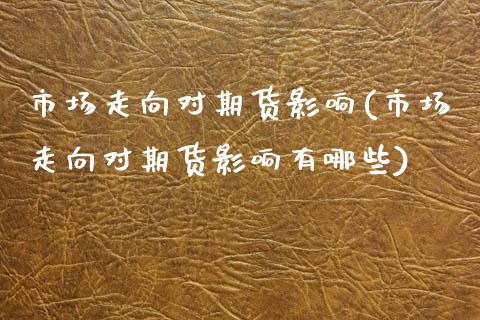 市场走向对期货影响(市场
走向对期货影响有哪些)